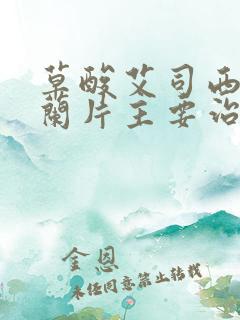 草酸艾司西
闌片主要治
金恩
未经同意禁止转载